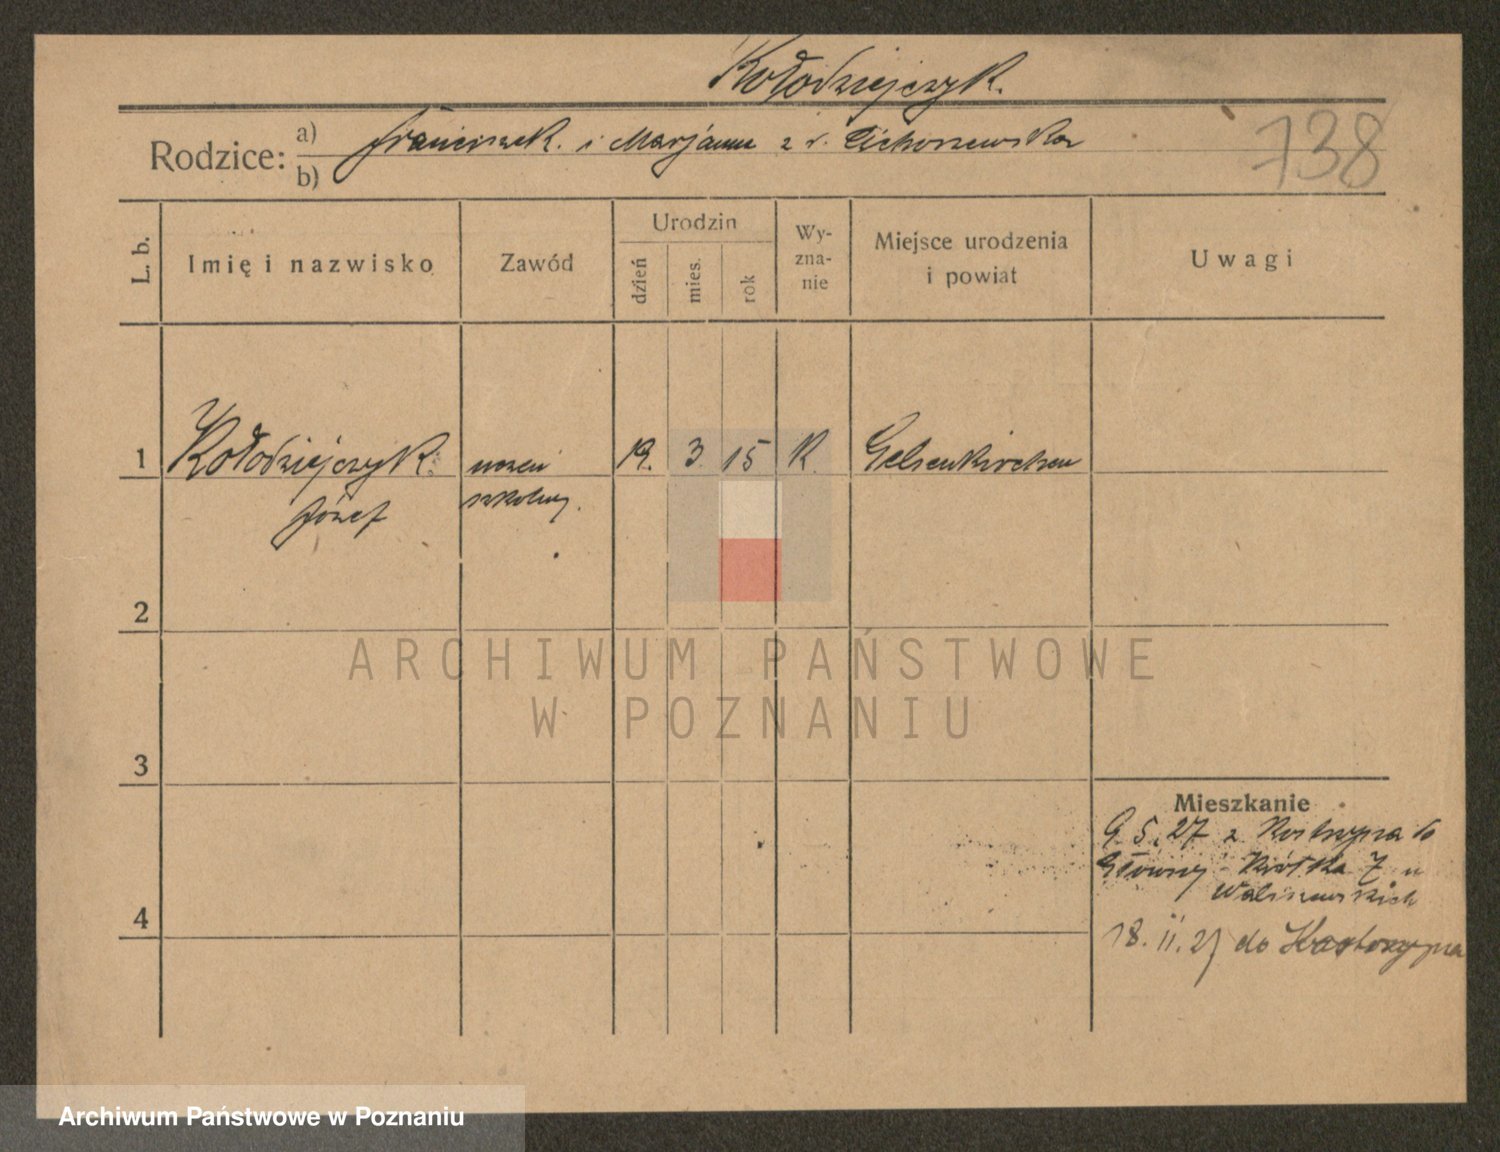 Kołodziejczyk.
738
Rodzice: a) Franciszek i Marjanna z d. Cichoszewska
b)
L. b. Imię i nazwisko Zawód Urodzin dzień mies. rok Wyznanie Miejsce urodzenia i powiat Uwagi
1 Kołodziejczyk uczeń 19. 3 15 K. Gelsenkirchen
Józef szkolny.
2
3
4
Mieszkanie
9. 5. 27 z Kostrzyna to
Główny - Krótka 7 u
Waliszewskich
18. 11. 27 do Kostrzyna
ARCHIWUM PAŃSTWOWE
W POZNANIU
Archiwum Państwowe w Poznaniu